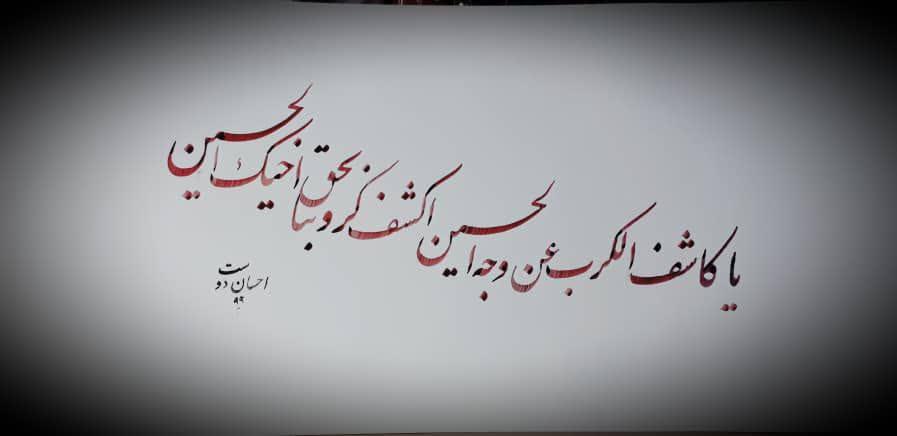 یا کاشف الکرب عن وجه الحسین اکشف کروبنا بحق اخیک الحسین
احسان دوست
۹۹